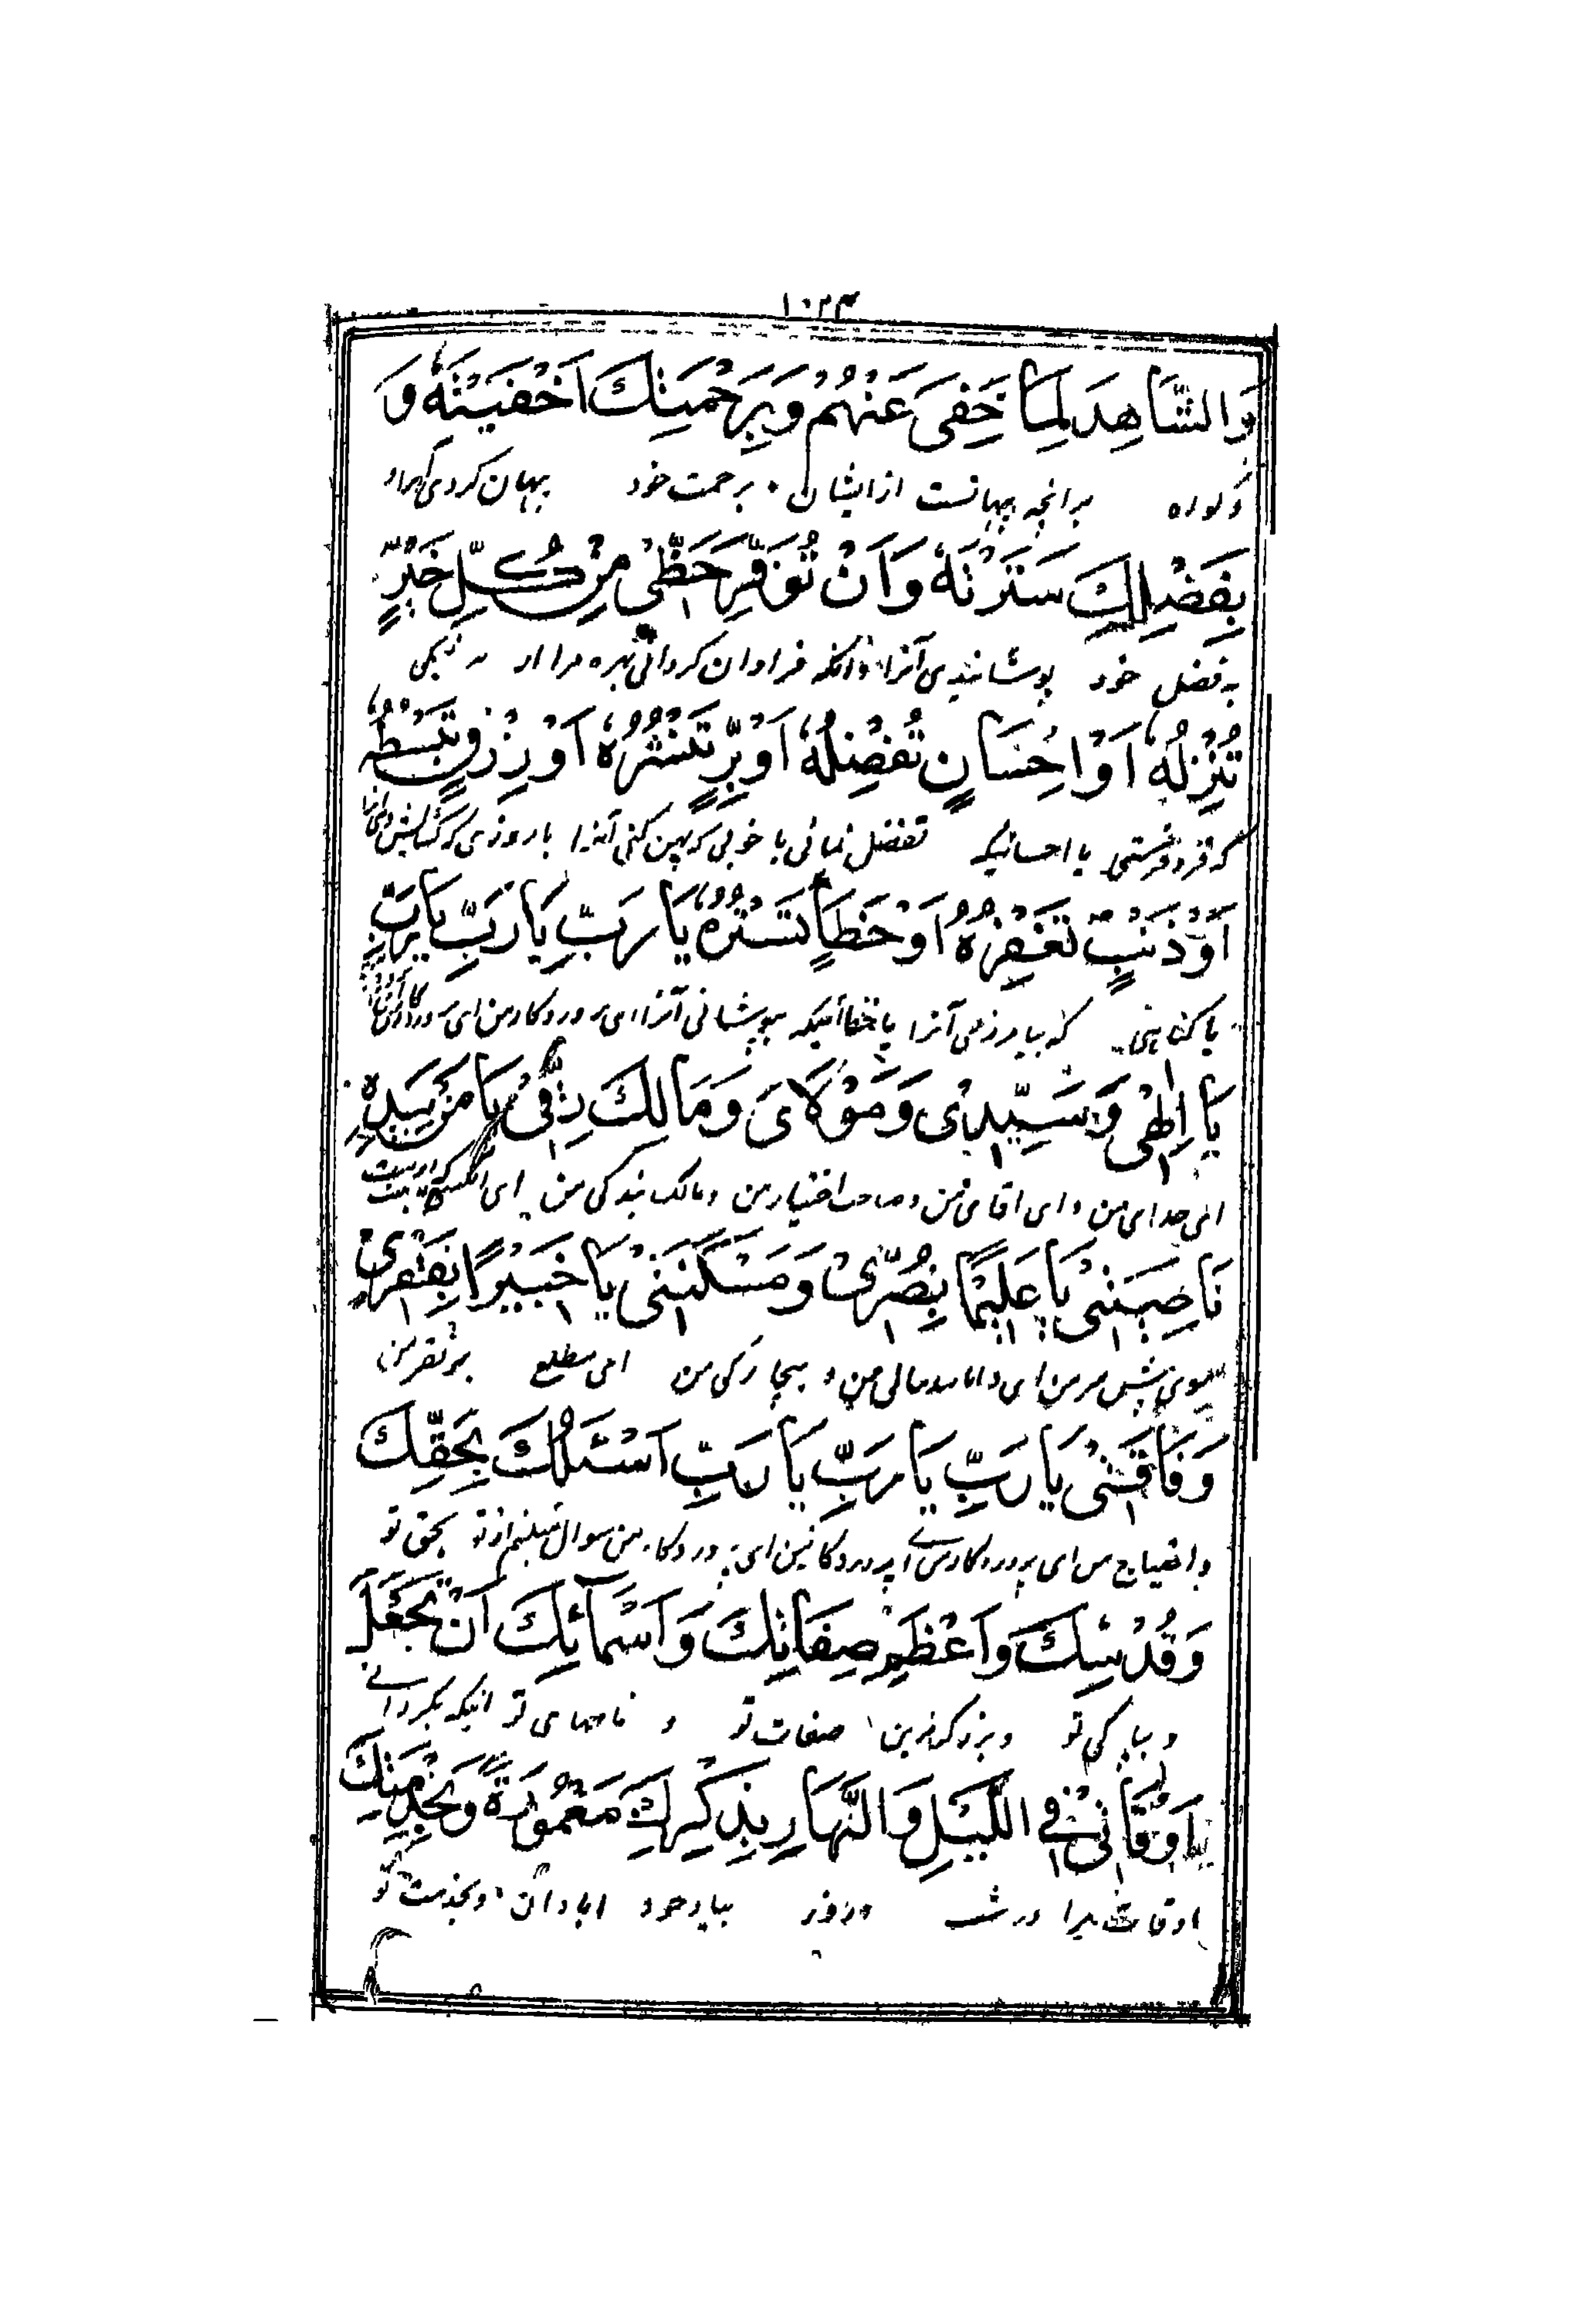 ۱۰۲۳
وَالشَّاهِدَ لِمَا خَفِىَ عَنْهُمْ وَبِرَحْمَتِكَ اَخْفَيْتَهُ وَ
و گواه برانچه پنهانست ازایشان و برحمت خود پنهان کردی آنرا و
بِفَضْلِكَ سَتَرْتَهُ وَاَنْ تُوَفِّرَ حَظّى مِنْ كُلِّ خَيْرٍ
به فضل خود پوشانیدی آنرا وآنکه فراوان گردانی بهره مرا از هر نیکی
تُنْزِلُهُ اَوْ اِحْسَانٍ تُفْضِلُهُ اَوْ بِرٍّ تَنْشُرُهُ اَوْ رِزْقٍ تَبْسُطُهُ
که فرو فرستی یا احسانیکه تفضل نمائی یا خوبی که پهن کنی آنرا یا روزی که گشایش دهی انرا
اَوْ ذَنْبٍ تَغْفِرُهُ اَوْ خَطَاٍ تَسْتُرُهُ يَا رَبِّ يَا رَبِّ يَا رَبِّ
یا گناهی که بیامرزی آنرا یا خطائیکه بپوشانی آنرا ای پروردگار من ای پروردگار من
يَا اِلٰهى وَسَيِّدى وَمَوْلَاىَ وَمَالِكَ رِقّى يَا مَنْ بِيَدِهِ
ای خدای من و ای اقای من و صاحب اختیار من و مالک بندگی من ای آنکسیکه بدست اوست
نَاصِيَتى يَا عَلِيمًا بِضُرّى وَمَسْكَنَتى يَا خَبِيْرًا بِفَقْرى
موی پیش سر من ای دانا ببدحالی من و بیچارگی من ای مطلع بر فقر من
وَفَاقَتى يَا رَبِّ يَا رَبِّ يَا رَبِّ اَسْئَلُكَ بِحَقِّكَ
و احتیاج من ای پروردگار من ای پروردگار من ای پروردگار من سوال میکنم از تو بحق تو
وَقُدْسِكَ وَاَعْظَمِ صِفَاتِكَ وَاَسْمَائِكَ اَنْ تَجْعَلَ
و بپاکی تو و بزرگترین صفات تو و نامهای تو اینکه بگردانی
اَوْقَاتى فِى اللَّيْلِ وَالنَّهَارِ بِذِكْرِكَ مَعْمُورَةً وَبِخِدْمَتِكَ
اوقات مرا در شب و روز بیاد خود ابادان و بخدمت تو